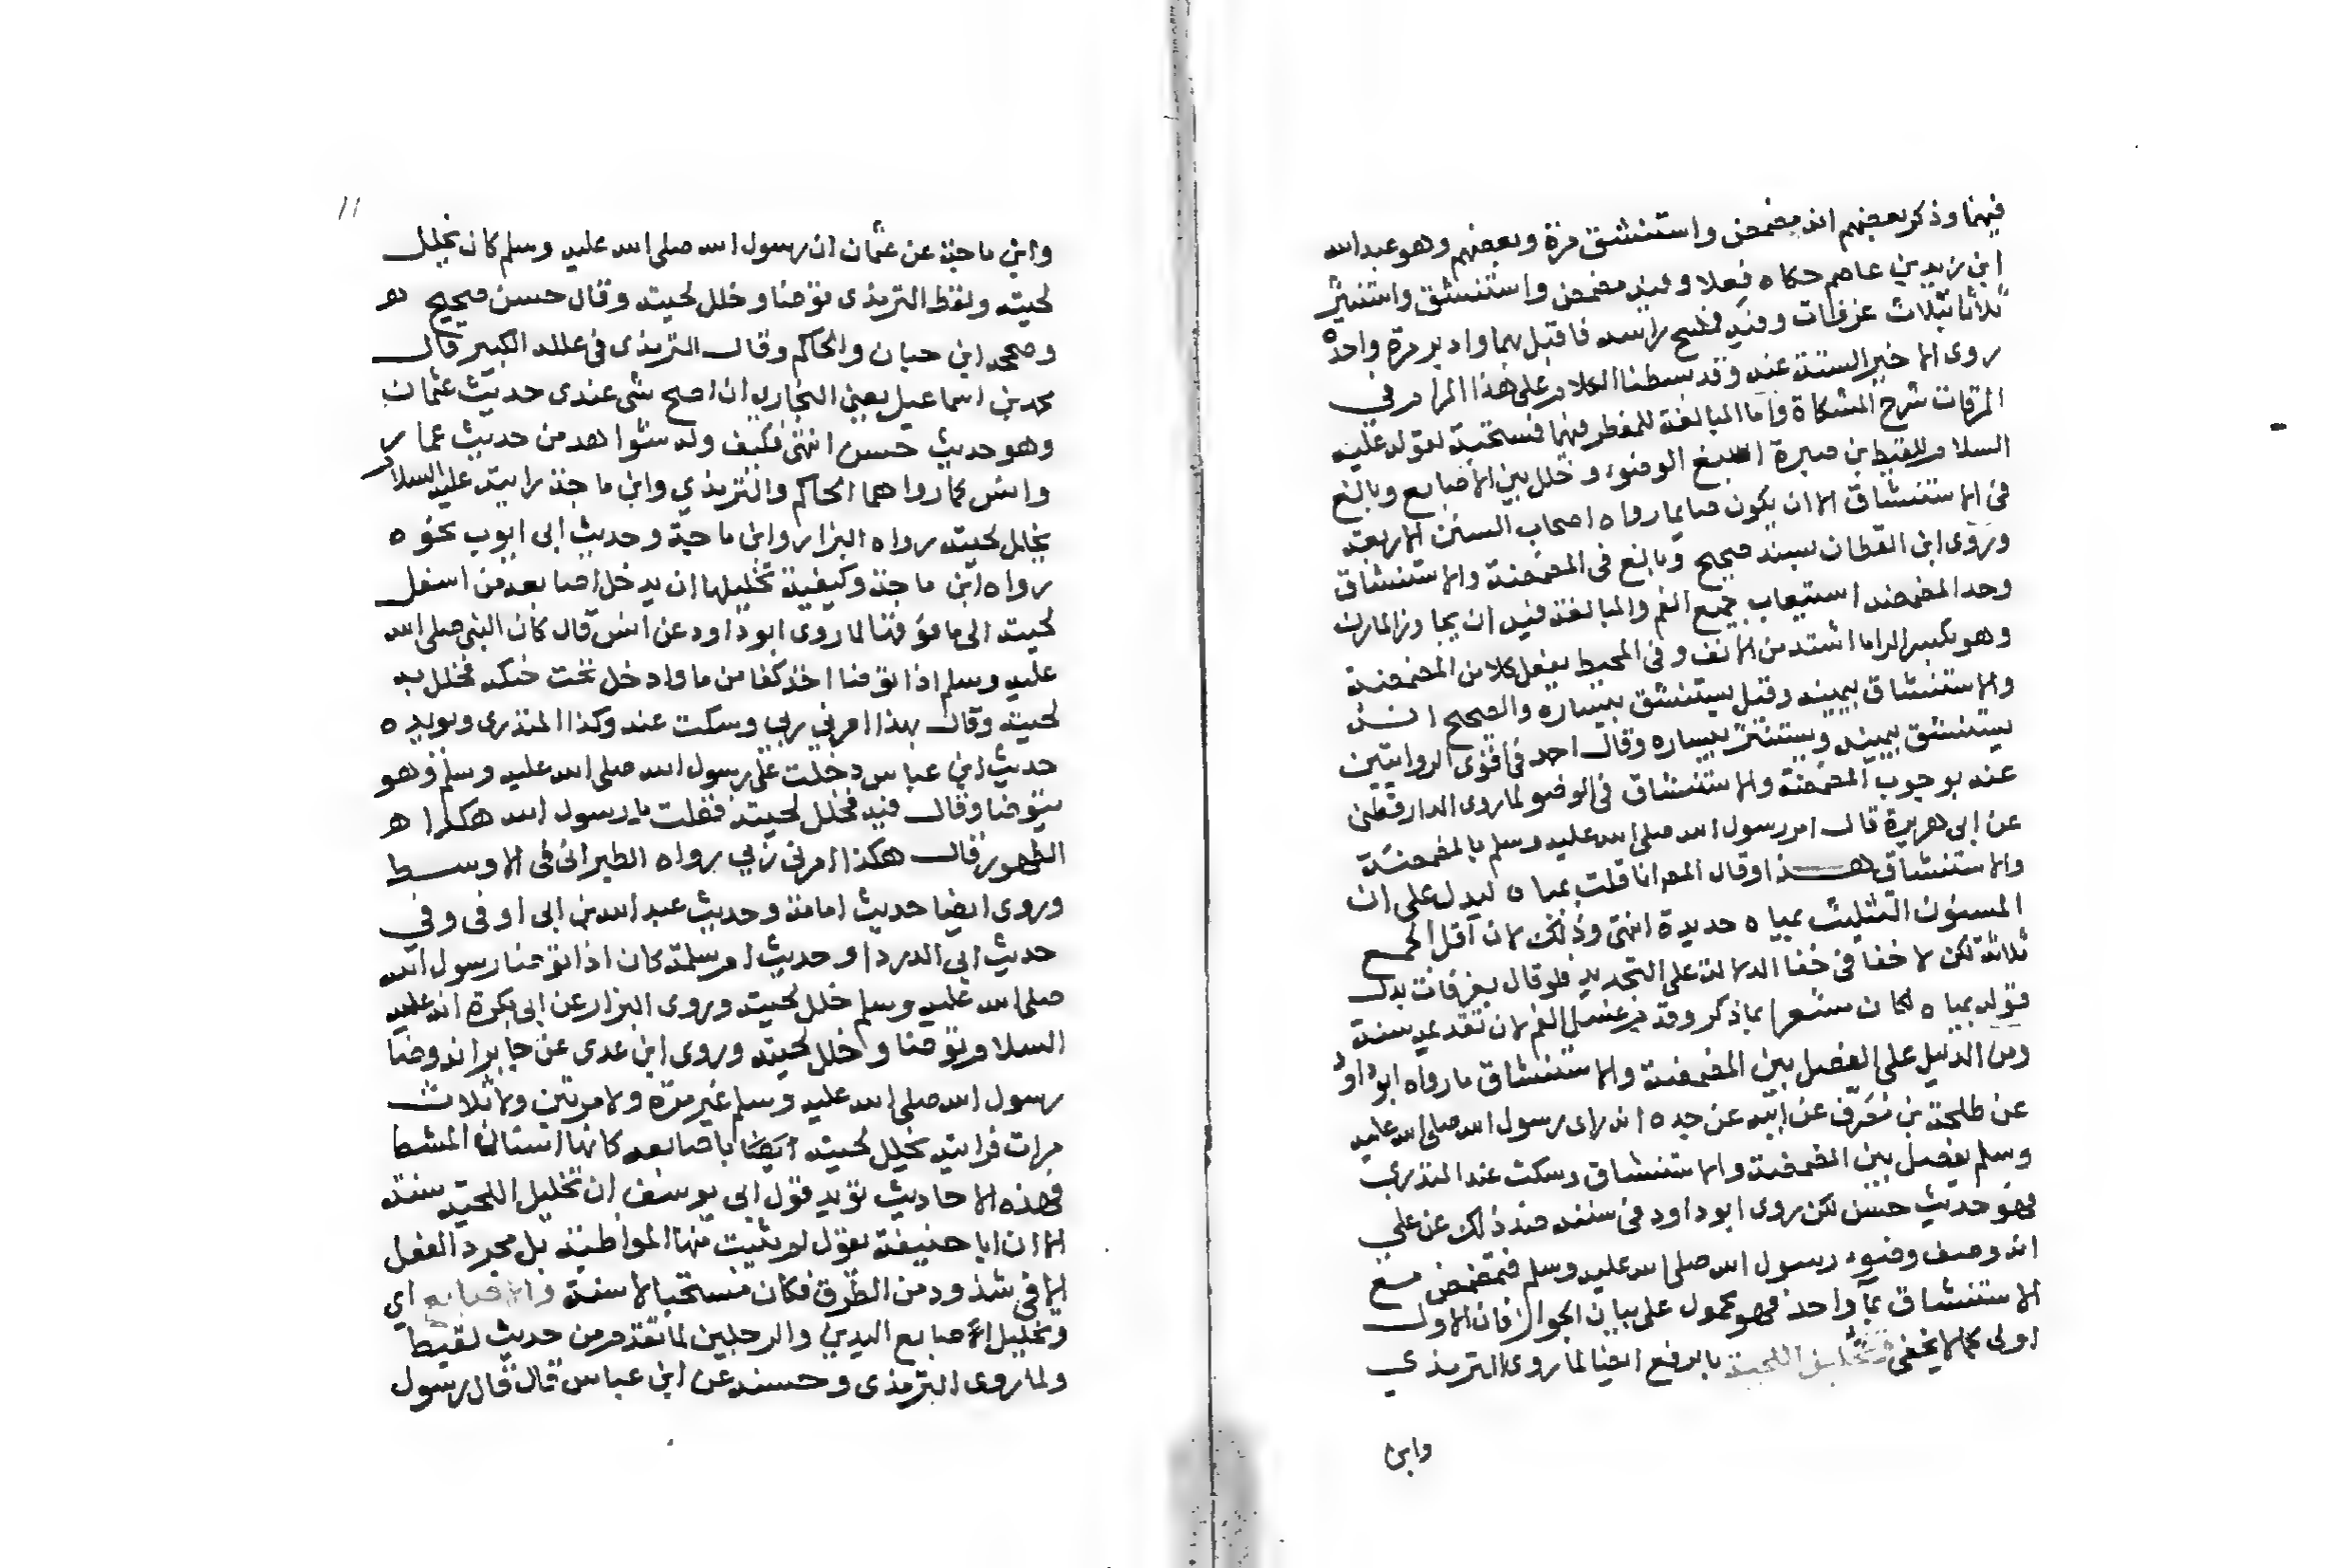 فيهما وذكر بعضهم انه مضمض واستنشق مرة وبعضهم وهو عبد الله
ابن زيد بن عاصم حكاه فعلا وفيه مضمض واستنشق واستنثر
ثلاثا بثلاث غرفات وفيه فمسح راسه فاقبل بهما وادبر مرة واحدة
روى الاخير الستة عنه وقد بسطنا الكلام على هذا المرام في
المرقات شرح المشكاة واما المبالغة للمفطر فيهما فمستحبة لقوله عليه
السلام للقيط بن صبرة اسبغ الوضوء وخلل بين الاصابع وبالغ
في الاستنشاق الا ان يكون صايما رواه اصحاب السنن الاربعة
وروى ابن القطان بسند صحيح وبالغ في المضمضة والاستنشاق
وحد المضمضه استيعاب جميع الفم والمبالغة فيه ان يجاوز المارن
وهو بكسر الرا ما اشتد من الانف وفي المحيط يفعل كلا من المضمضة
والاستنشاق بيمينه وقيل يستنشق بيساره والصحيح انه
يستنشق بيمينه ويستنثر بيساره وقال احمد في اقوى الروايتين
عنه بوجوب المضمضة والاستنشاق في الوضو لما روى الدارقطني
عن ابي هريرة قال امر رسول الله صلى الله عليه وسلم بالمضمضة
والاستنشاق هذا وقال المص انا قلت بمياه ليدل على ان
المسنون التثليث بمياه جديدة انتهى وذلك لان اقل الجمع
ثلاثة لكن لا خفا في خفا الدلالة على التجديد فلو قال بغرفات بدل
قوله بمياه لكان مشعرا بما ذكر وقد م غسل الفم لان تقديمه سنة
ومن الدليل على الفصل بين المضمضة والاستنشاق ما رواه ابو داود
عن طلحة بن مصرف عن ابيه عن جده انه راى رسول الله صلى الله عليه
وسلم يفصل بين المضمضة والاستنشاق وسكت عنه المنذري
فهو حديث حسن لكن روى ابو داود في سننه ضد ذلك عن علي
انه وصف وضوء رسول الله صلى الله عليه وسلم فتمضمض مع
الاستنشاق بما واحد فهو محمول على بيان الجواز فان الاول
اولى كما لا يخفى وتخليل اللحية بالرفع ايضا لما روى الترمذي
وابن
١١
وابن ماجة عن عثمان ان رسول الله صلى الله عليه وسلم كان يخلل
لحيته ولفظ الترمذى توضا وخلل لحيته وقال حسن صحيح
وصححه ابن حبان والحاكم وقال الترمذى في علله الكبير قال
محمد بن اسماعيل يعني البخاري ان اصح شي عندى حديث عثمان
وهو حديث حسن انتهى فكيف وله شواهد من حديث عمار
وانس كما رواهما الحاكم والترمذي وابن ماجة رايته عليه السلام
يخلل لحيته رواه البزار وابن ماجة وحديث ابى ايوب نحوه
رواه ابن ماجة وكيفية تخليلها ان يدخل اصابعه من اسفل
لحيته الى ما فوقها لما روى ابو داود عن انس قال كان النبي صلى الله
عليه وسلم اذا توضا اخذ كفا من ما وادخل تحت حنكه فخلل به
لحيته وقال بهذا امرني ربي وسكت عنه وكذا المنذرى ويويده
حديث ابن عباس دخلت على رسول الله صلى الله عليه وسلم وهو
يتوضا وقال فيه فخلل لحيته فقلت يا رسول الله هكذا
الطهور قال هكذا امرني ربي رواه الطبراني في الاوسط
وروى ايضا حديث امامة وحديث عبد الله بن ابى اوفى وفي
حديث ابى الدردا وحديث ام سلمة كان اذا توضا رسول الله
صلى الله عليه وسلم خلل لحيته وروى البزار عن ابى بكرة انه عليه
السلام توضا وخلل لحيته وروى ابن عدى عن جابر انه وضا
رسول الله صلى الله عليه وسلم غير مرة ولا مرتين ولا ثلاث
مرات فرايته يخلل لحيته ايضا باصابعه كانها اسنان المشط
فهذه الاحاديث تويد قول ابى يوسف ان تخليل اللحية سنة
الا ان ابا حنيفة يقول لم يثبت منها المواظبة بل مجرد الفعل
الا في شذوذ من الطرق فكان مستحبا لا سنة والاصابع اي
وتخليل الاصابع اليدين والرجلين لما تقدم من حديث لقيط
ولما روى الترمذى وحسنه عن ابن عباس قال قال رسول